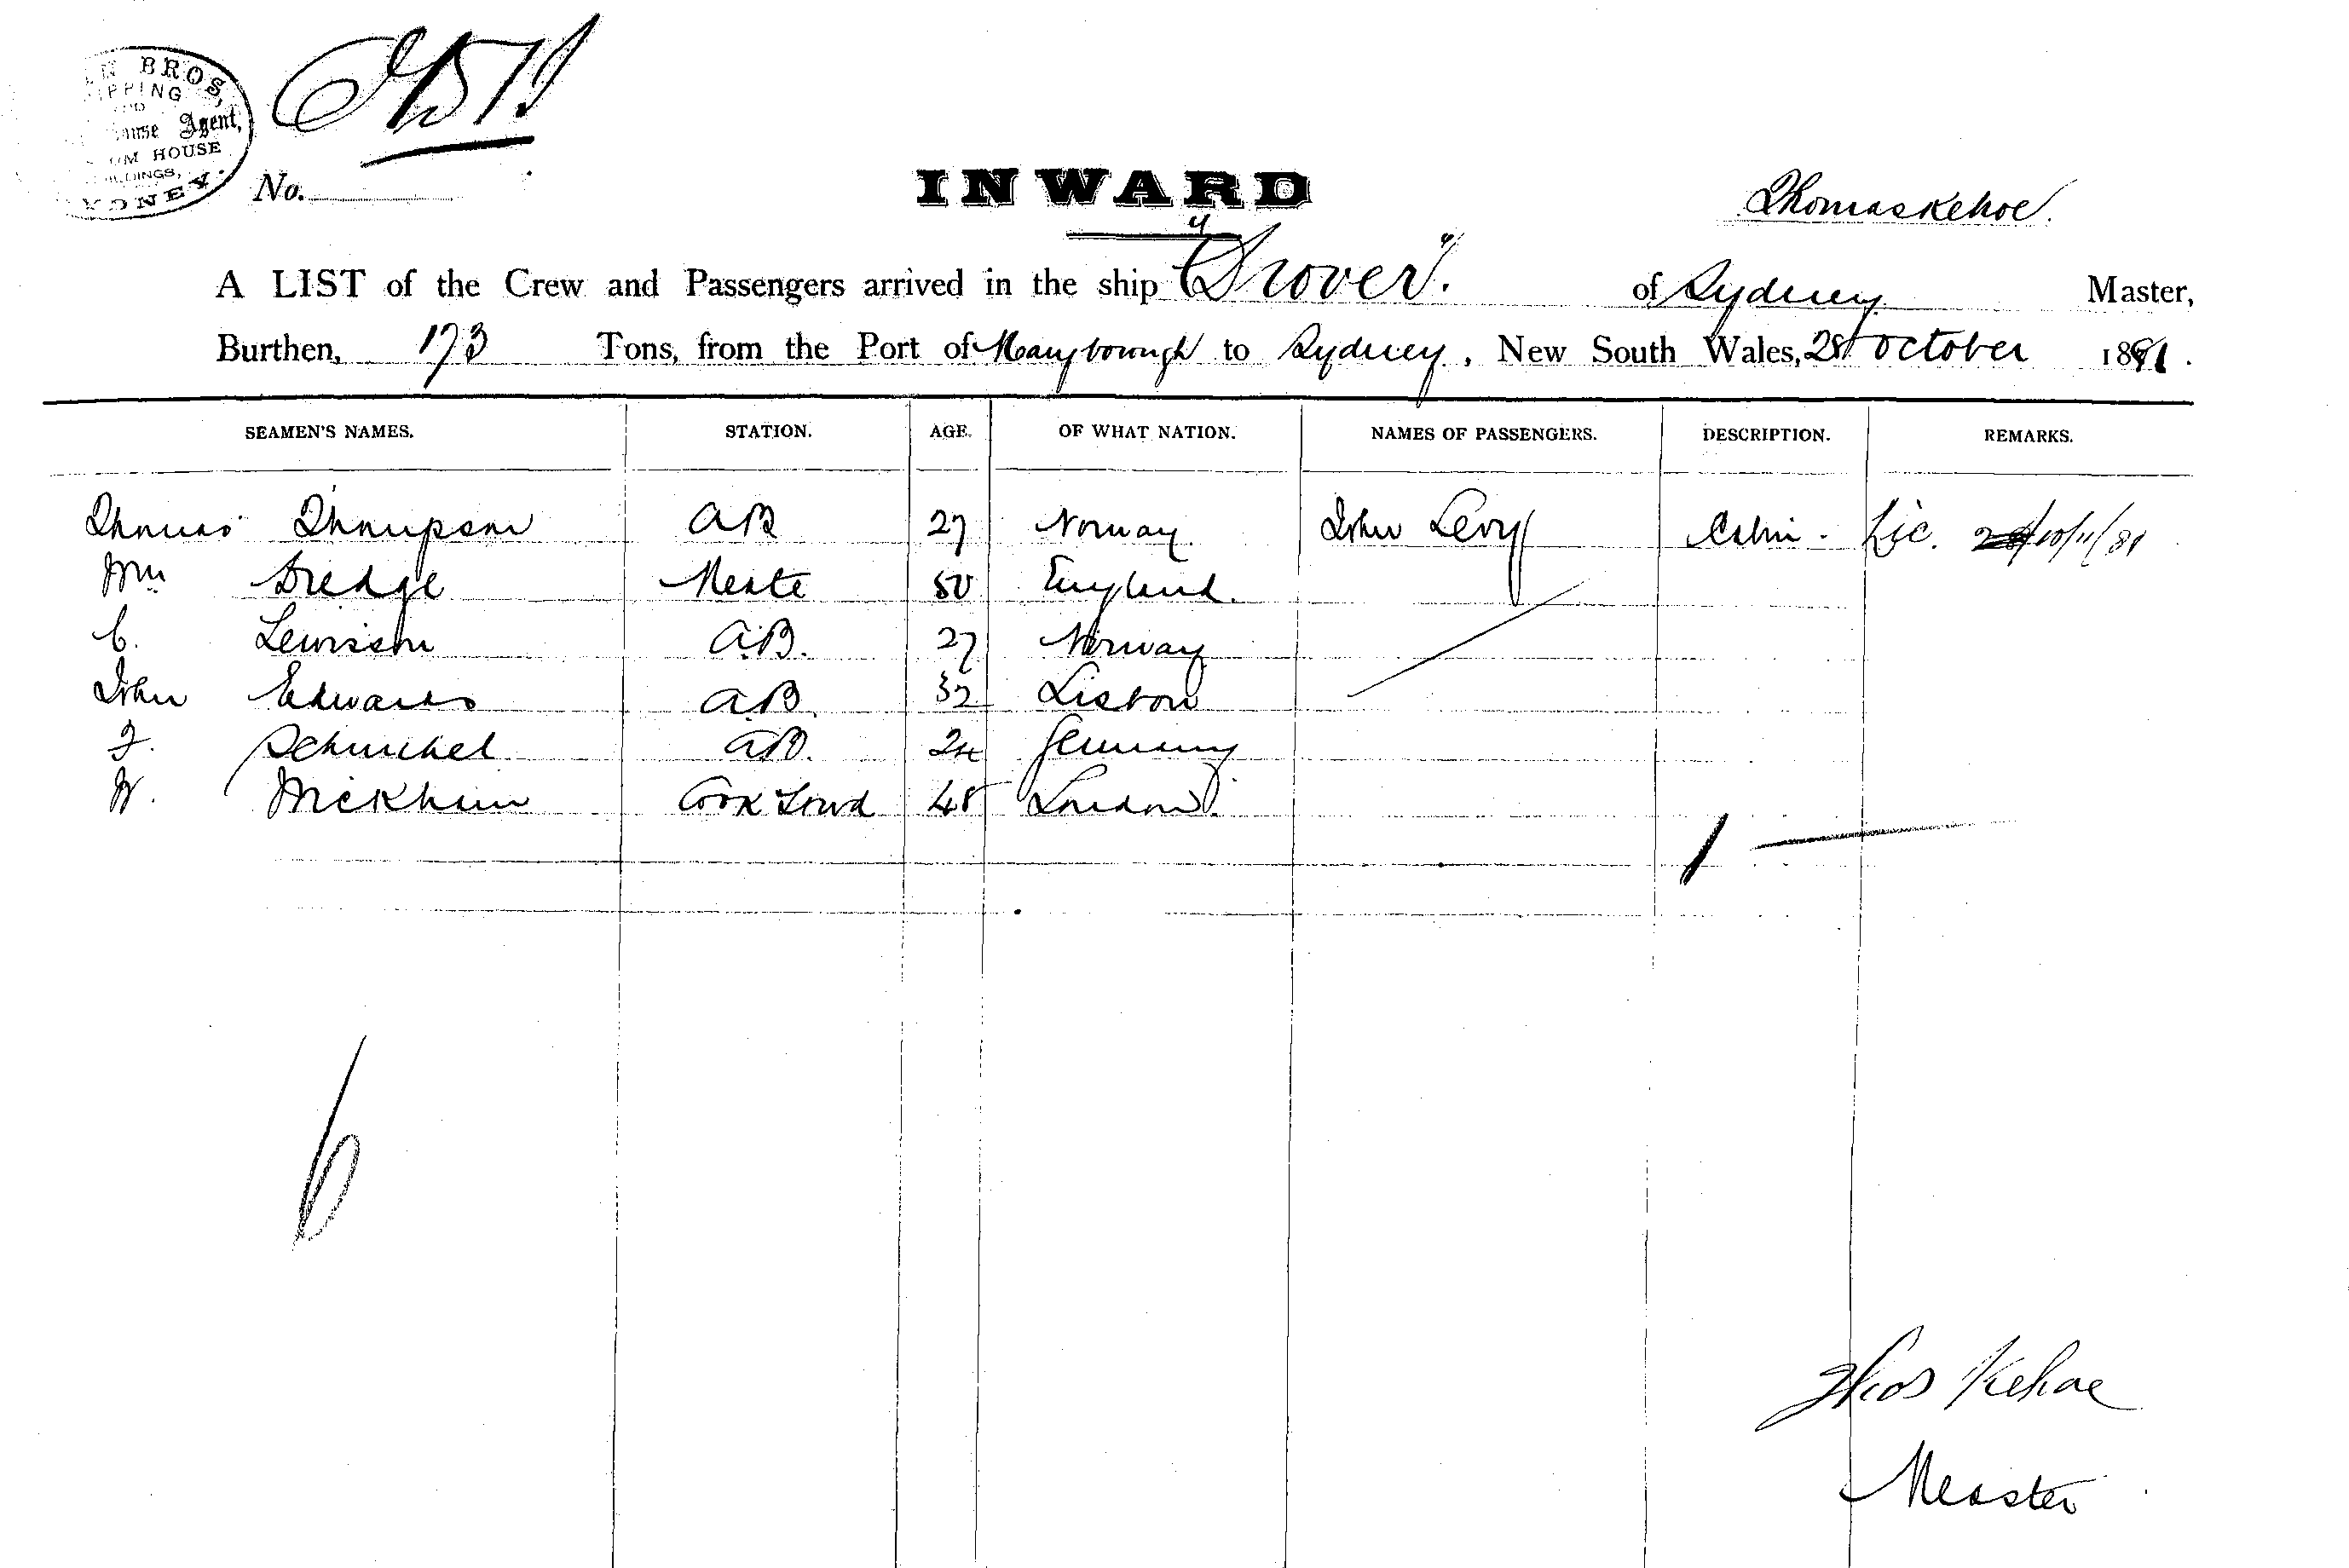 BROS,
PPING
Agent,
HOUSE
No.
INWARD
Thomas Kehoe.
A LIST of the Crew and Passengers arrived in the ship "Drover". of Sydney Master,
Burthen, 173 Tons, from the Port of Maryborough to Sydney, New South Wales, 28th October 1881.
SEAMEN'S NAMES. STATION. AGE. OF WHAT NATION. NAMES OF PASSENGERS. DESCRIPTION. REMARKS.
Thomas Thompson AB 27 Norway. John Levy Cabin. Lic.
Wm Dredge Mate 50 England.
C. Lewisson A.B. 27 Norway
John Edwards A.B. 32 Lisbon
F. AB. 24 Germany
W. Wickham Cook 48 London.
1
6
Thos Kehoe
Master